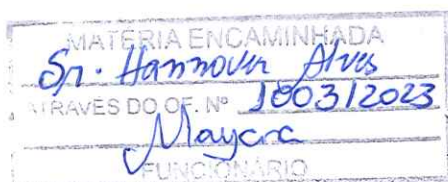 MATÉRIA ENCAMINHADA
Sr. Hannover Alves
ATRAVÉS DO OF. Nº 1003/2023
Mayara
FUNCIONÁRIO